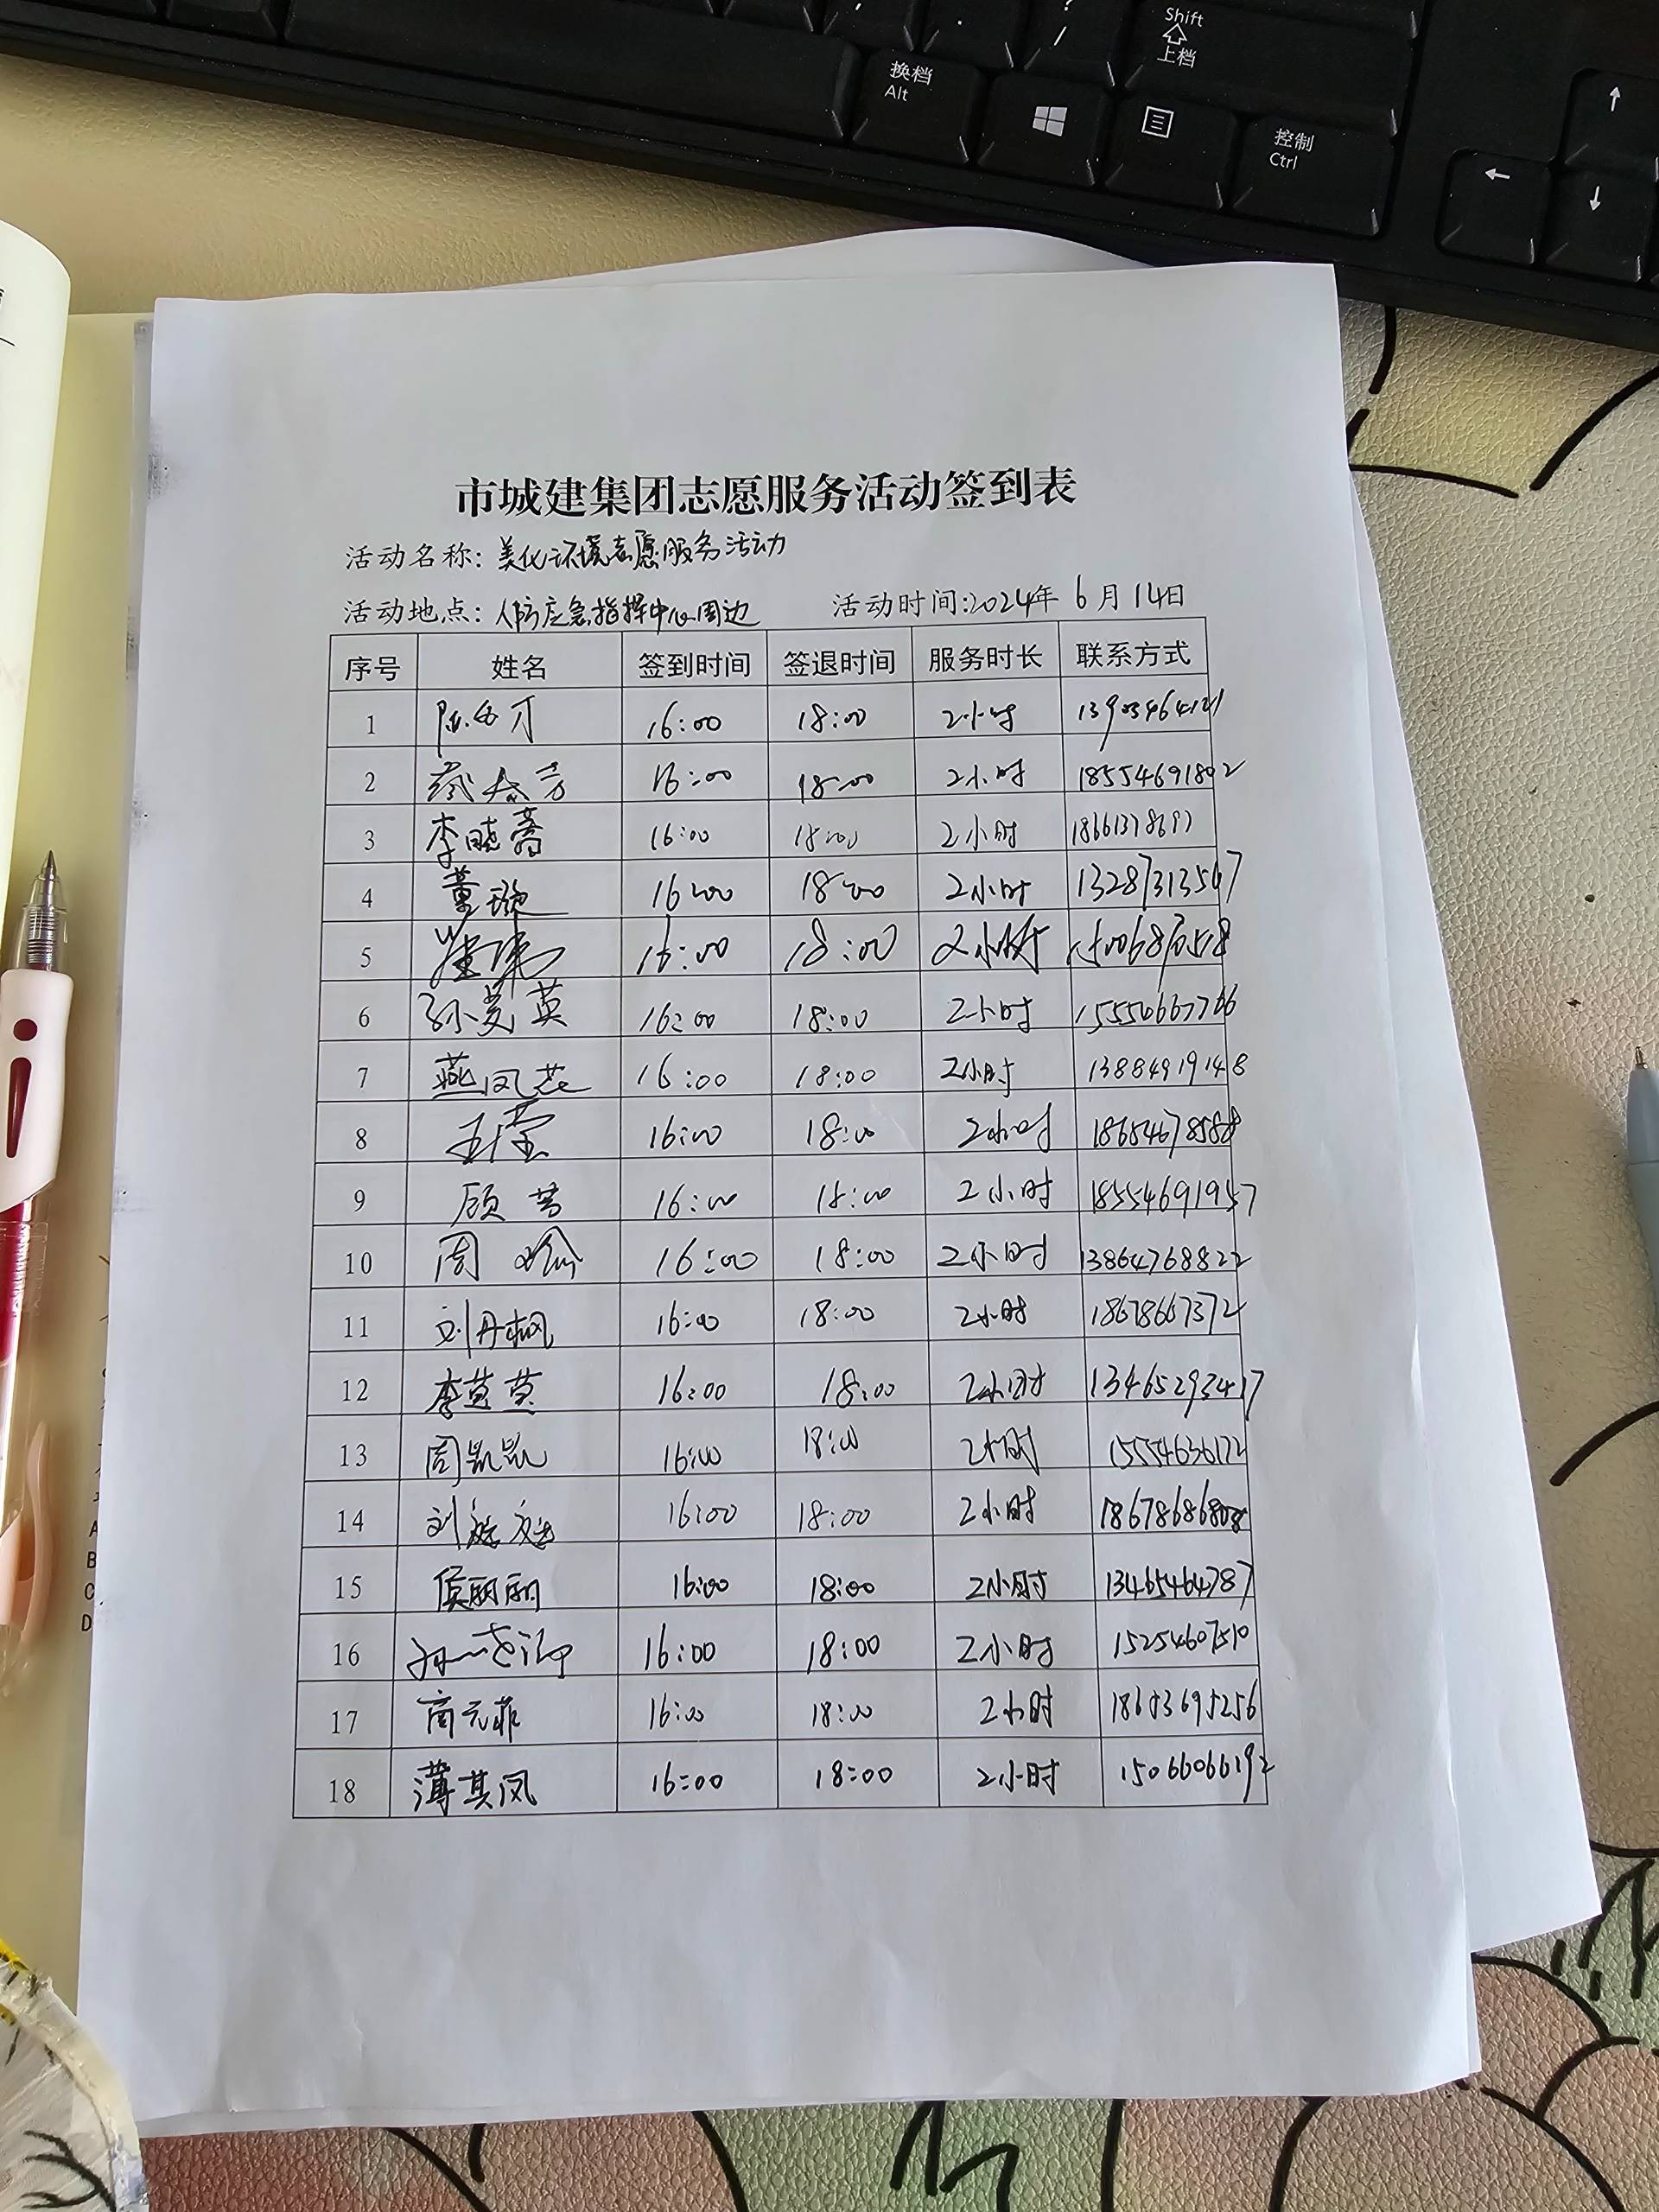 Shift
上档
换档
Alt
控制
Ctrl
市城建集团志愿服务活动签到表
活动名称: 美化环境志愿服务活动
活动地点: 人防应急指挥中心周边 活动时间:2024年 6月14日
序号 姓名 签到时间 签退时间 服务时长 联系方式
1 16:00 18:00 2小时
2 16:00 18:00 2小时 18554691802
3 李晓蕾 16:00 18:00 2小时 18661378697
4 董璇 16:00 18:00 2小时 13287313567
5 16:00 18:00 2小时
6 孙爱英 16:00 18:00 2小时 15550667766
7 燕凤芝 16:00 18:00 2小时 13884919148
8 王莹 16:00 18:00 2小时 18654678588
9 顾芳 16:00 18:00 2小时 18554691957
10 周晗 16:00 18:00 2小时 13864768822
11 刘丹枫 16:00 18:00 2小时 18678667372
12 李莫莫 16:00 18:00 2小时 13465293417
13 周凯凯 16:00 18:00 2小时 15554636172
14 刘庭庭 16:00 18:00 2小时 18678686808
15 侯丽丽 16:00 18:00 2小时 13465464787
16 16:00 18:00 2小时 15254607510
17 商元菲 16:00 18:00 2小时 18653695256
18 薄其凤 16:00 18:00 2小时 15066066192
A
B
C
D